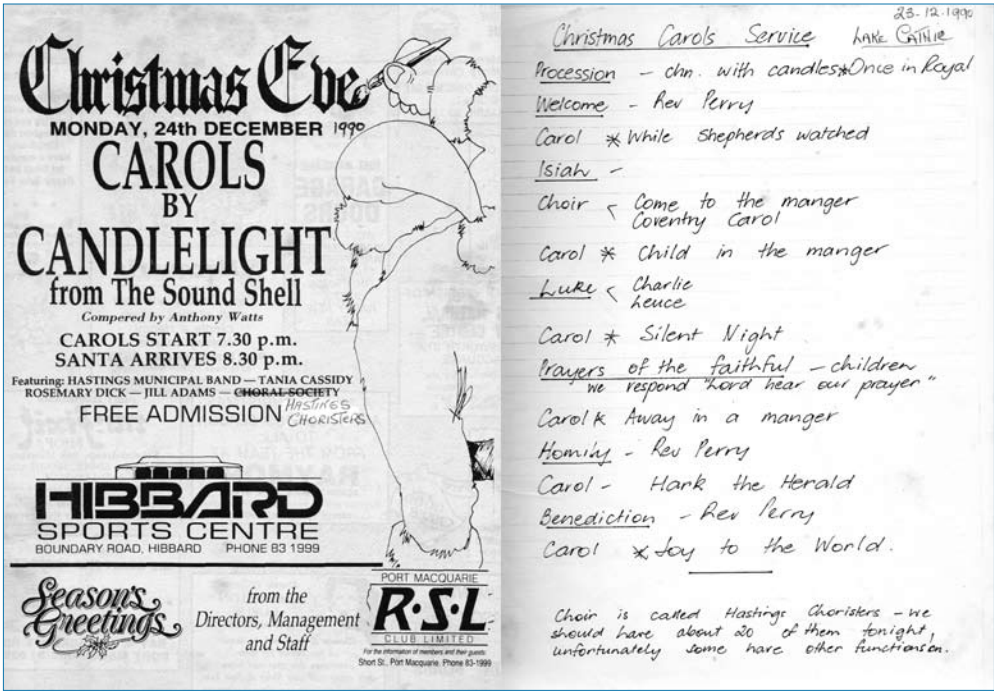 Christmas Eve
MONDAY, 24th DECEMBER 1990
CAROLS
BY
CANDLELIGHT
from The Sound Shell
Compered by Anthony Watts
CAROLS START 7.30 p.m.
SANTA ARRIVES 8.30 p.m.
Featuring: HASTINGS MUNICIPAL BAND — TANIA CASSIDY
ROSEMARY DICK — JILL ADAMS — CHORAL SOCIETY
FREE ADMISSION HASTINGS
CHORISTERS
HIBBARD
SPORTS CENTRE
BOUNDARY ROAD, HIBBARD PHONE 83 1999
Season's
Greetings
from the
Directors, Management
and Staff
PORT MACQUARIE
R·S·L
CLUB LIMITED
For the information of members and their guests
Short St., Port Macquarie. Phone 83-1999
23-12-1990
Christmas Carols Service LAKE CATHIE
Procession - chn. with candles * Once in Royal
Welcome - Rev Perry
Carol * While Shepherds watched
Isiah -
Choir < Come to the manger
Coventry Carol
Carol * Child in the manger
Luke < Charlie
Leuce
Carol * Silent Night
Prayers of the faithful - children
we respond "Lord hear our prayer"
Carol * Away in a manger
Homily - Rev Perry
Carol - Hark the Herald
Benediction - Rev Perry
Carol * Joy to the World.
Choir is called Hastings Choristers - we
should have about 20 of them tonight,
unfortunately some have other functions on.